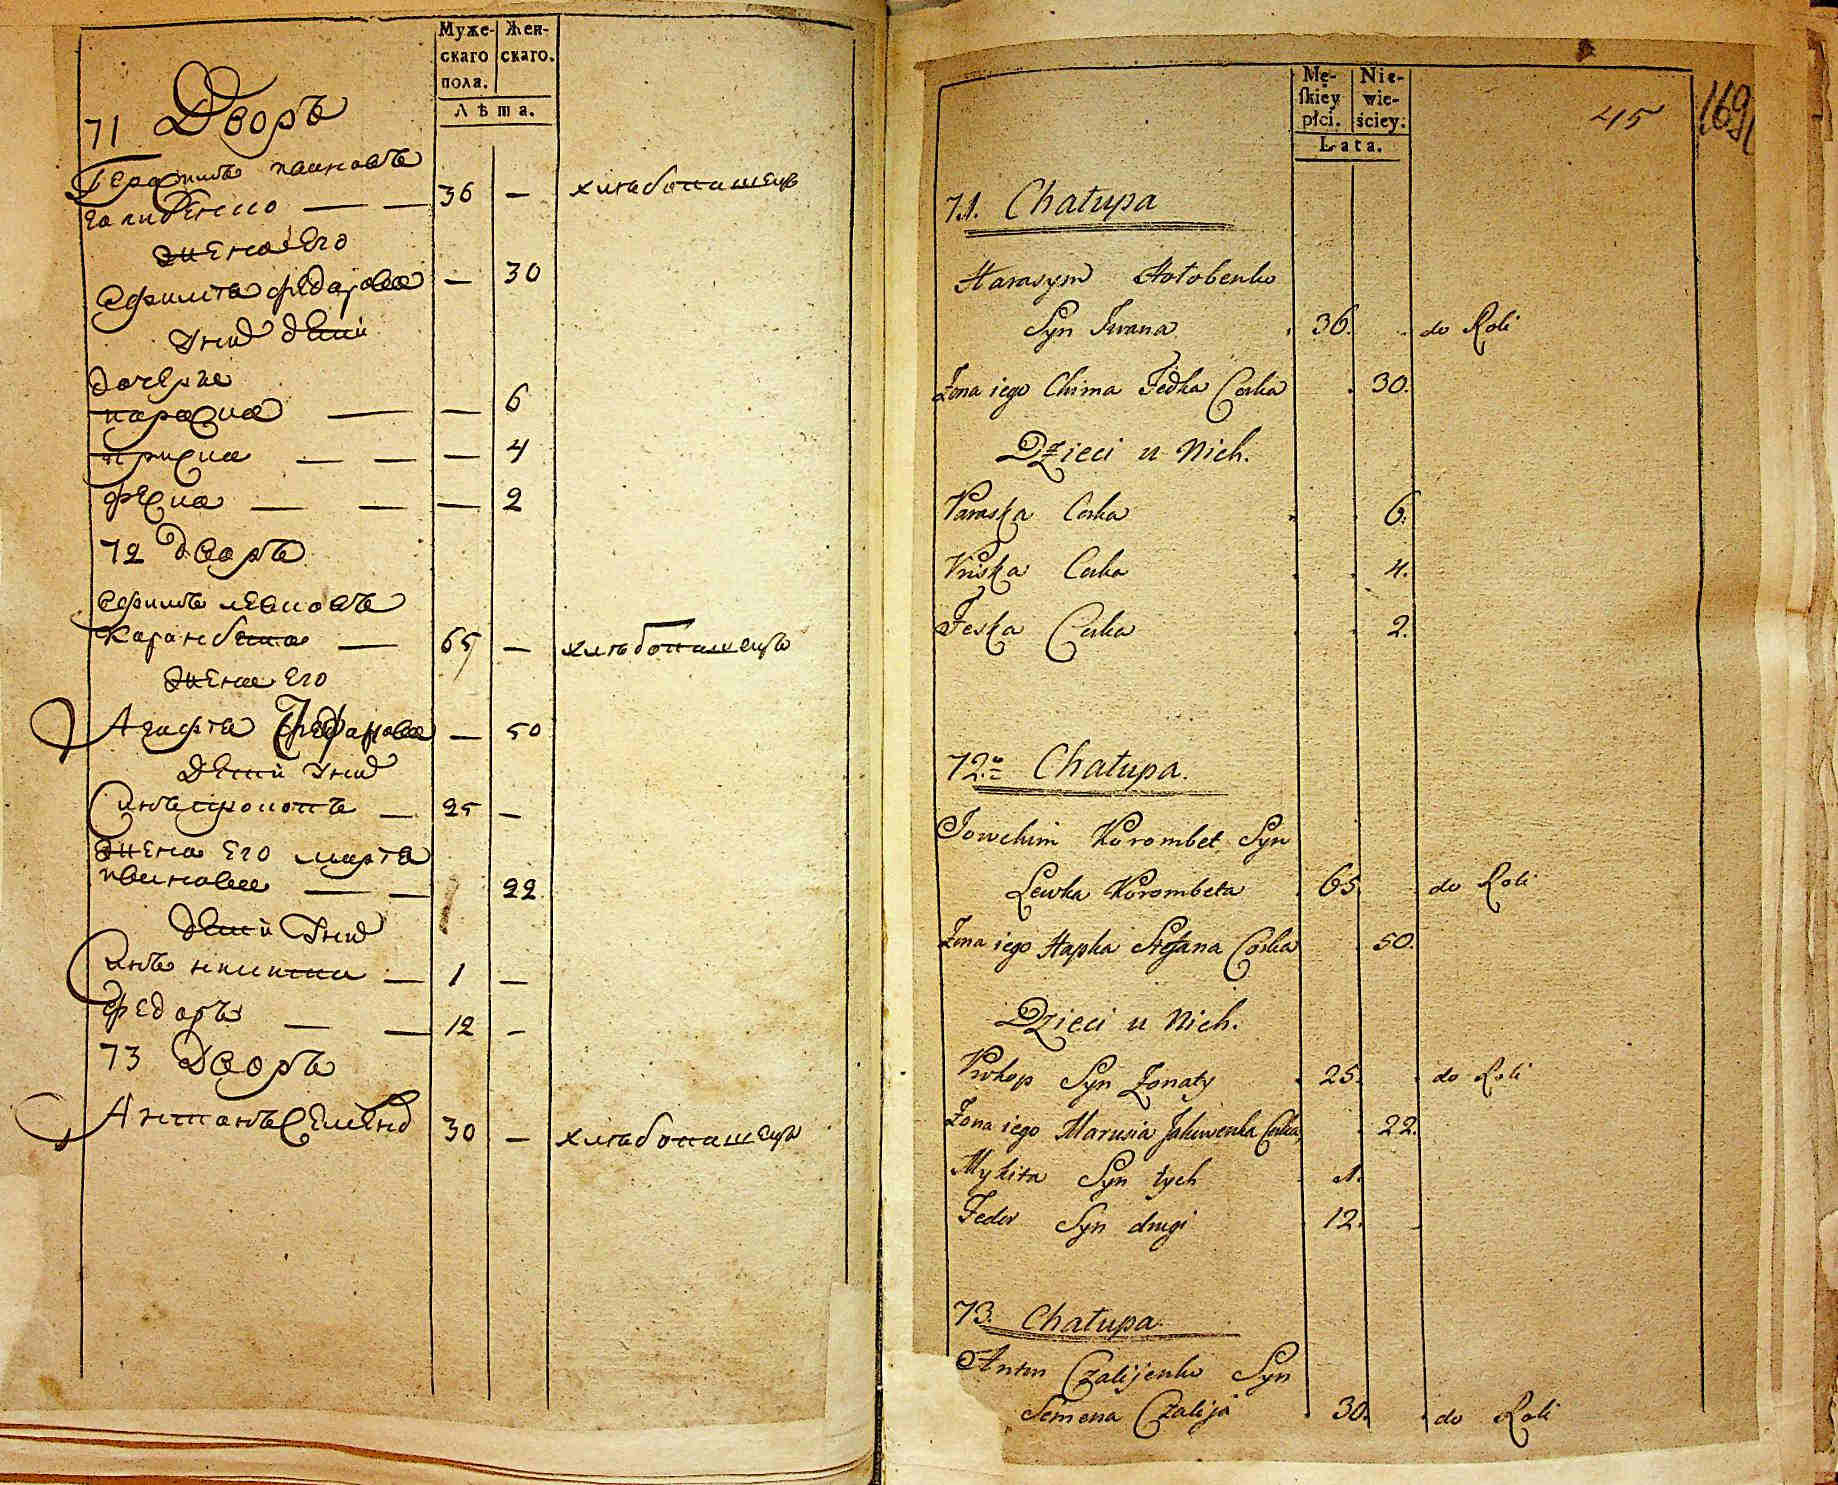 Муже-
скаго
пола.
Жен-
скаго.
Лѣта.
71 Дворъ
Герасимъ Ивановъ
Голубенко — — 36 — хлѣбопашецъ
жена Его
Ефимія Федорова — 30
У них дети
дочери
Параска — — 6
Приска — — — 4
Феска — — — 2
72 дворъ
Ефимъ Левковъ
Карамбета — 65 — хлѣбопашецъ
жена Его
Агафія — 50
Дети У них
Синъ Прокопъ — 25 —
жена Его Марта
Иванова — — 22
дети У них
Синъ Никита — 1 —
Федоръ — — 12 —
73 Дворъ
Антонъ Семенов 30 — хлѣбопашецъ
Mę-
skiey
płci.
Nie-
wie-
ściey.
Lata.
45
169
71. Chałupa
Harasym Hołobenko
Syn Iwana 36. do Roli
Żona iego Chima Fedka Corka 30.
Dzieci u Nich.
Paraska Corka 6.
Priska Corka 4.
Feska Corka 2.
72. Chałupa.
Jowchim Korombet Syn
Lewka Korombeta 65 do Roli
Żona iego Hapka Stefana Corka 50.
Dzieci u Nich.
Prokop Syn Żonaty 25. do Roli
Żona iego Marusia Jakiwenka Corka 22.
Mykita Syn tych 1.
Fedor Syn drugi 12.
73. Chałupa
Anton Czalijenko Syn
Semena Czalija 30. do Roli